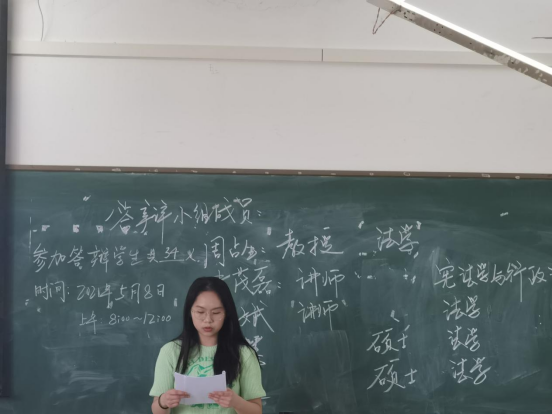 答辩小组成员:
参加答辩学生共37人 周占全: 教授 法学
茂磊: 讲师 宪法学与行政
时间: 2021年5月8日 斌 讲师 法学
上午 8:00~12:00 硕士 法学
硕士 法学